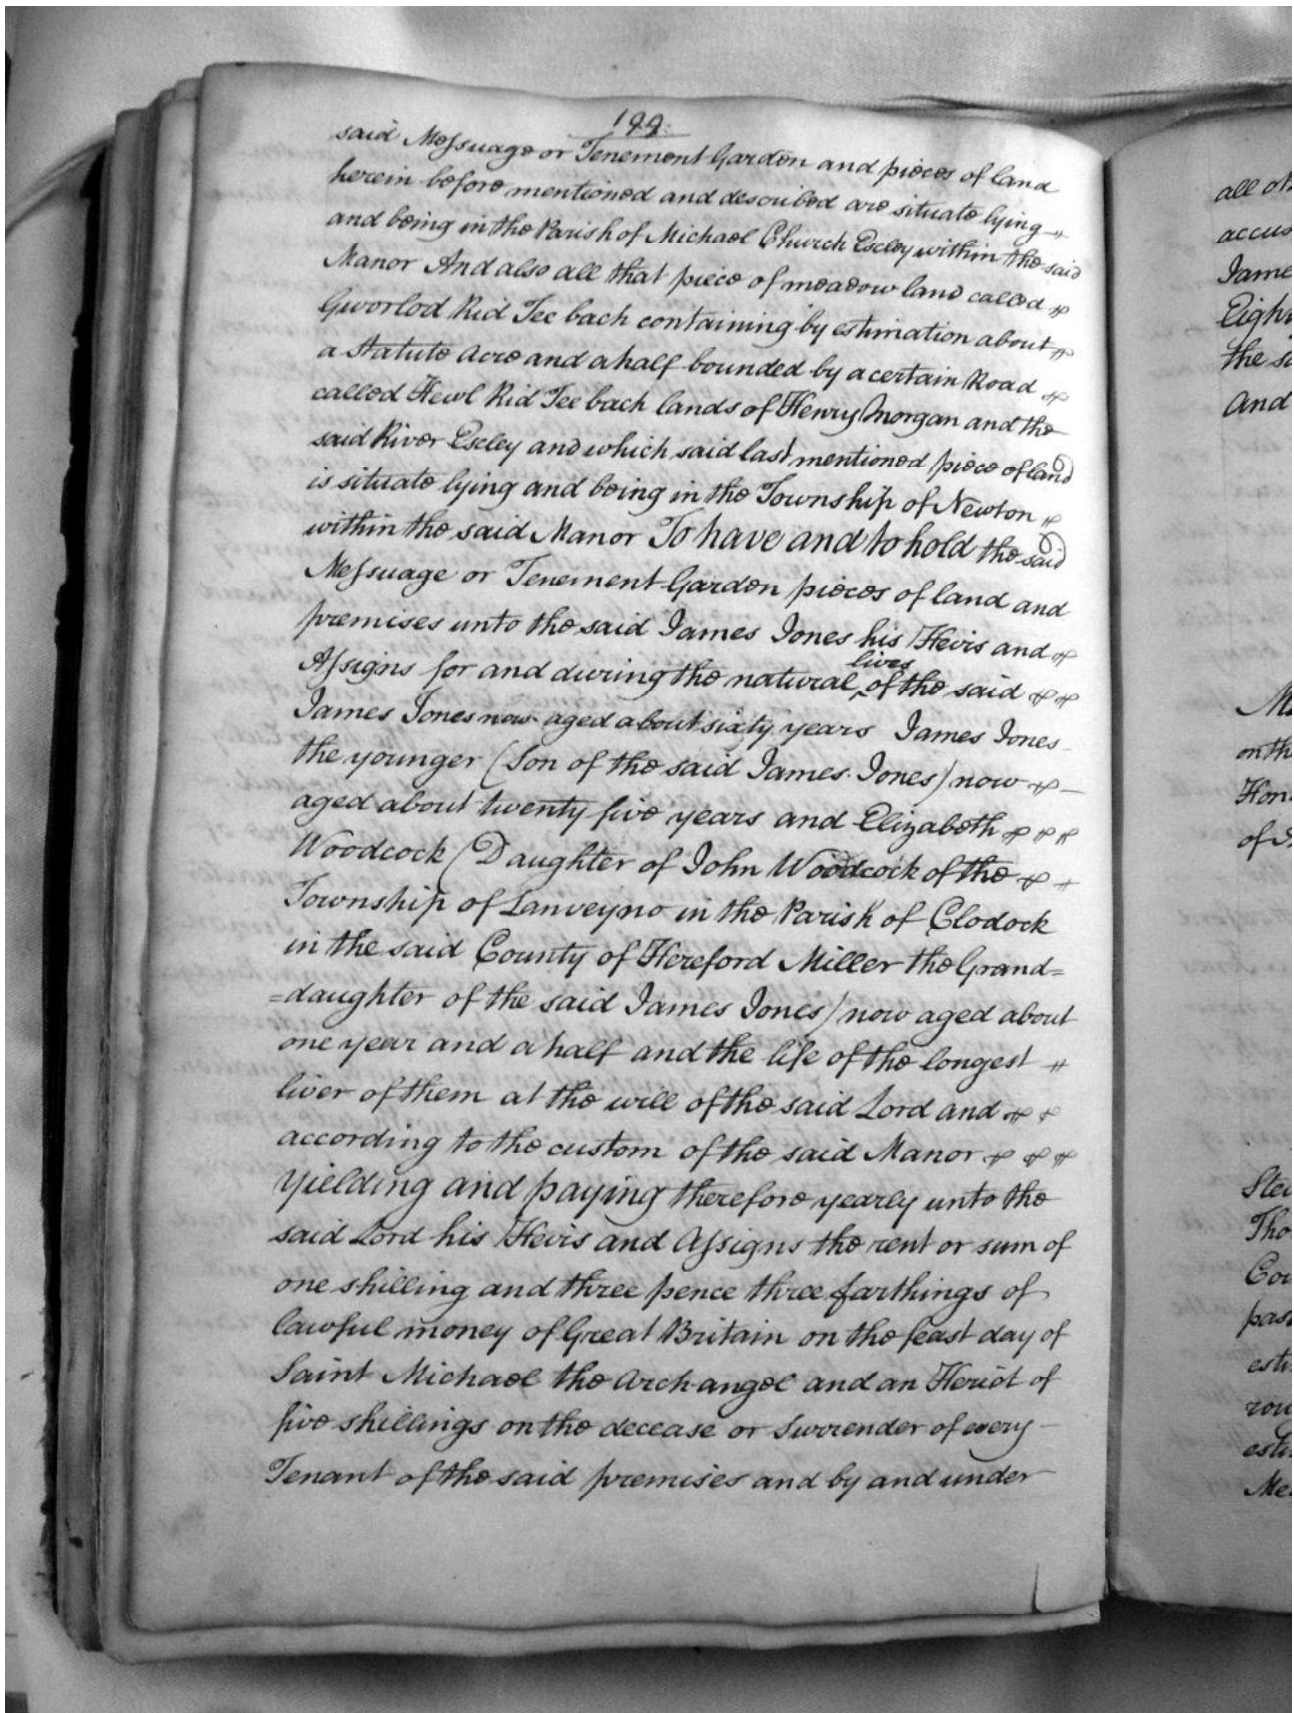 188.
said Messuage or Tenement Garden and pieces of land
herein before mentioned and described are situate lying
and being in the Parish of Michael Church Escley within the said
Manor And also all that piece of meadow land called
Gworlod Rid Tee bach containing by estimation about
a Statute Acre and a half bounded by a certain Road
called Hewl Rid Tee bach lands of Henry Morgan and the
said River Escley and which said last mentioned piece of land
is situate lying and being in the Township of Newton
within the said Manor To have and to hold the said
Messuage or Tenement Garden pieces of land and
premises unto the said James Jones his Heirs and
lives
Assigns for and during the natural ‸ of the said
James Jones now aged about sixty years James Jones
the younger (Son of the said James Jones) now
aged about twenty five years and Elizabeth
Woodcock (Daughter of John Woodcock of the
Township of Lanveyno in the Parish of Clodock
in the said County of Hereford Miller the Grand=
=daughter of the said James Jones) now aged about
one year and a half and the life of the longest
liver of them at the will of the said Lord and
according to the custom of the said Manor
Yielding and paying therefore yearly unto the
said Lord his Heirs and Assigns the rent or sum of
one shilling and three pence three farthings of
lawful money of Great Britain on the feast day of
Saint Michael the Arch-angel and an Heriot of
five shillings on the decease or Surrender of every
Tenant of the said premises and by and under
all
accus
Jame
Eigh
the
And
on th
Hon
of
Tho
pas